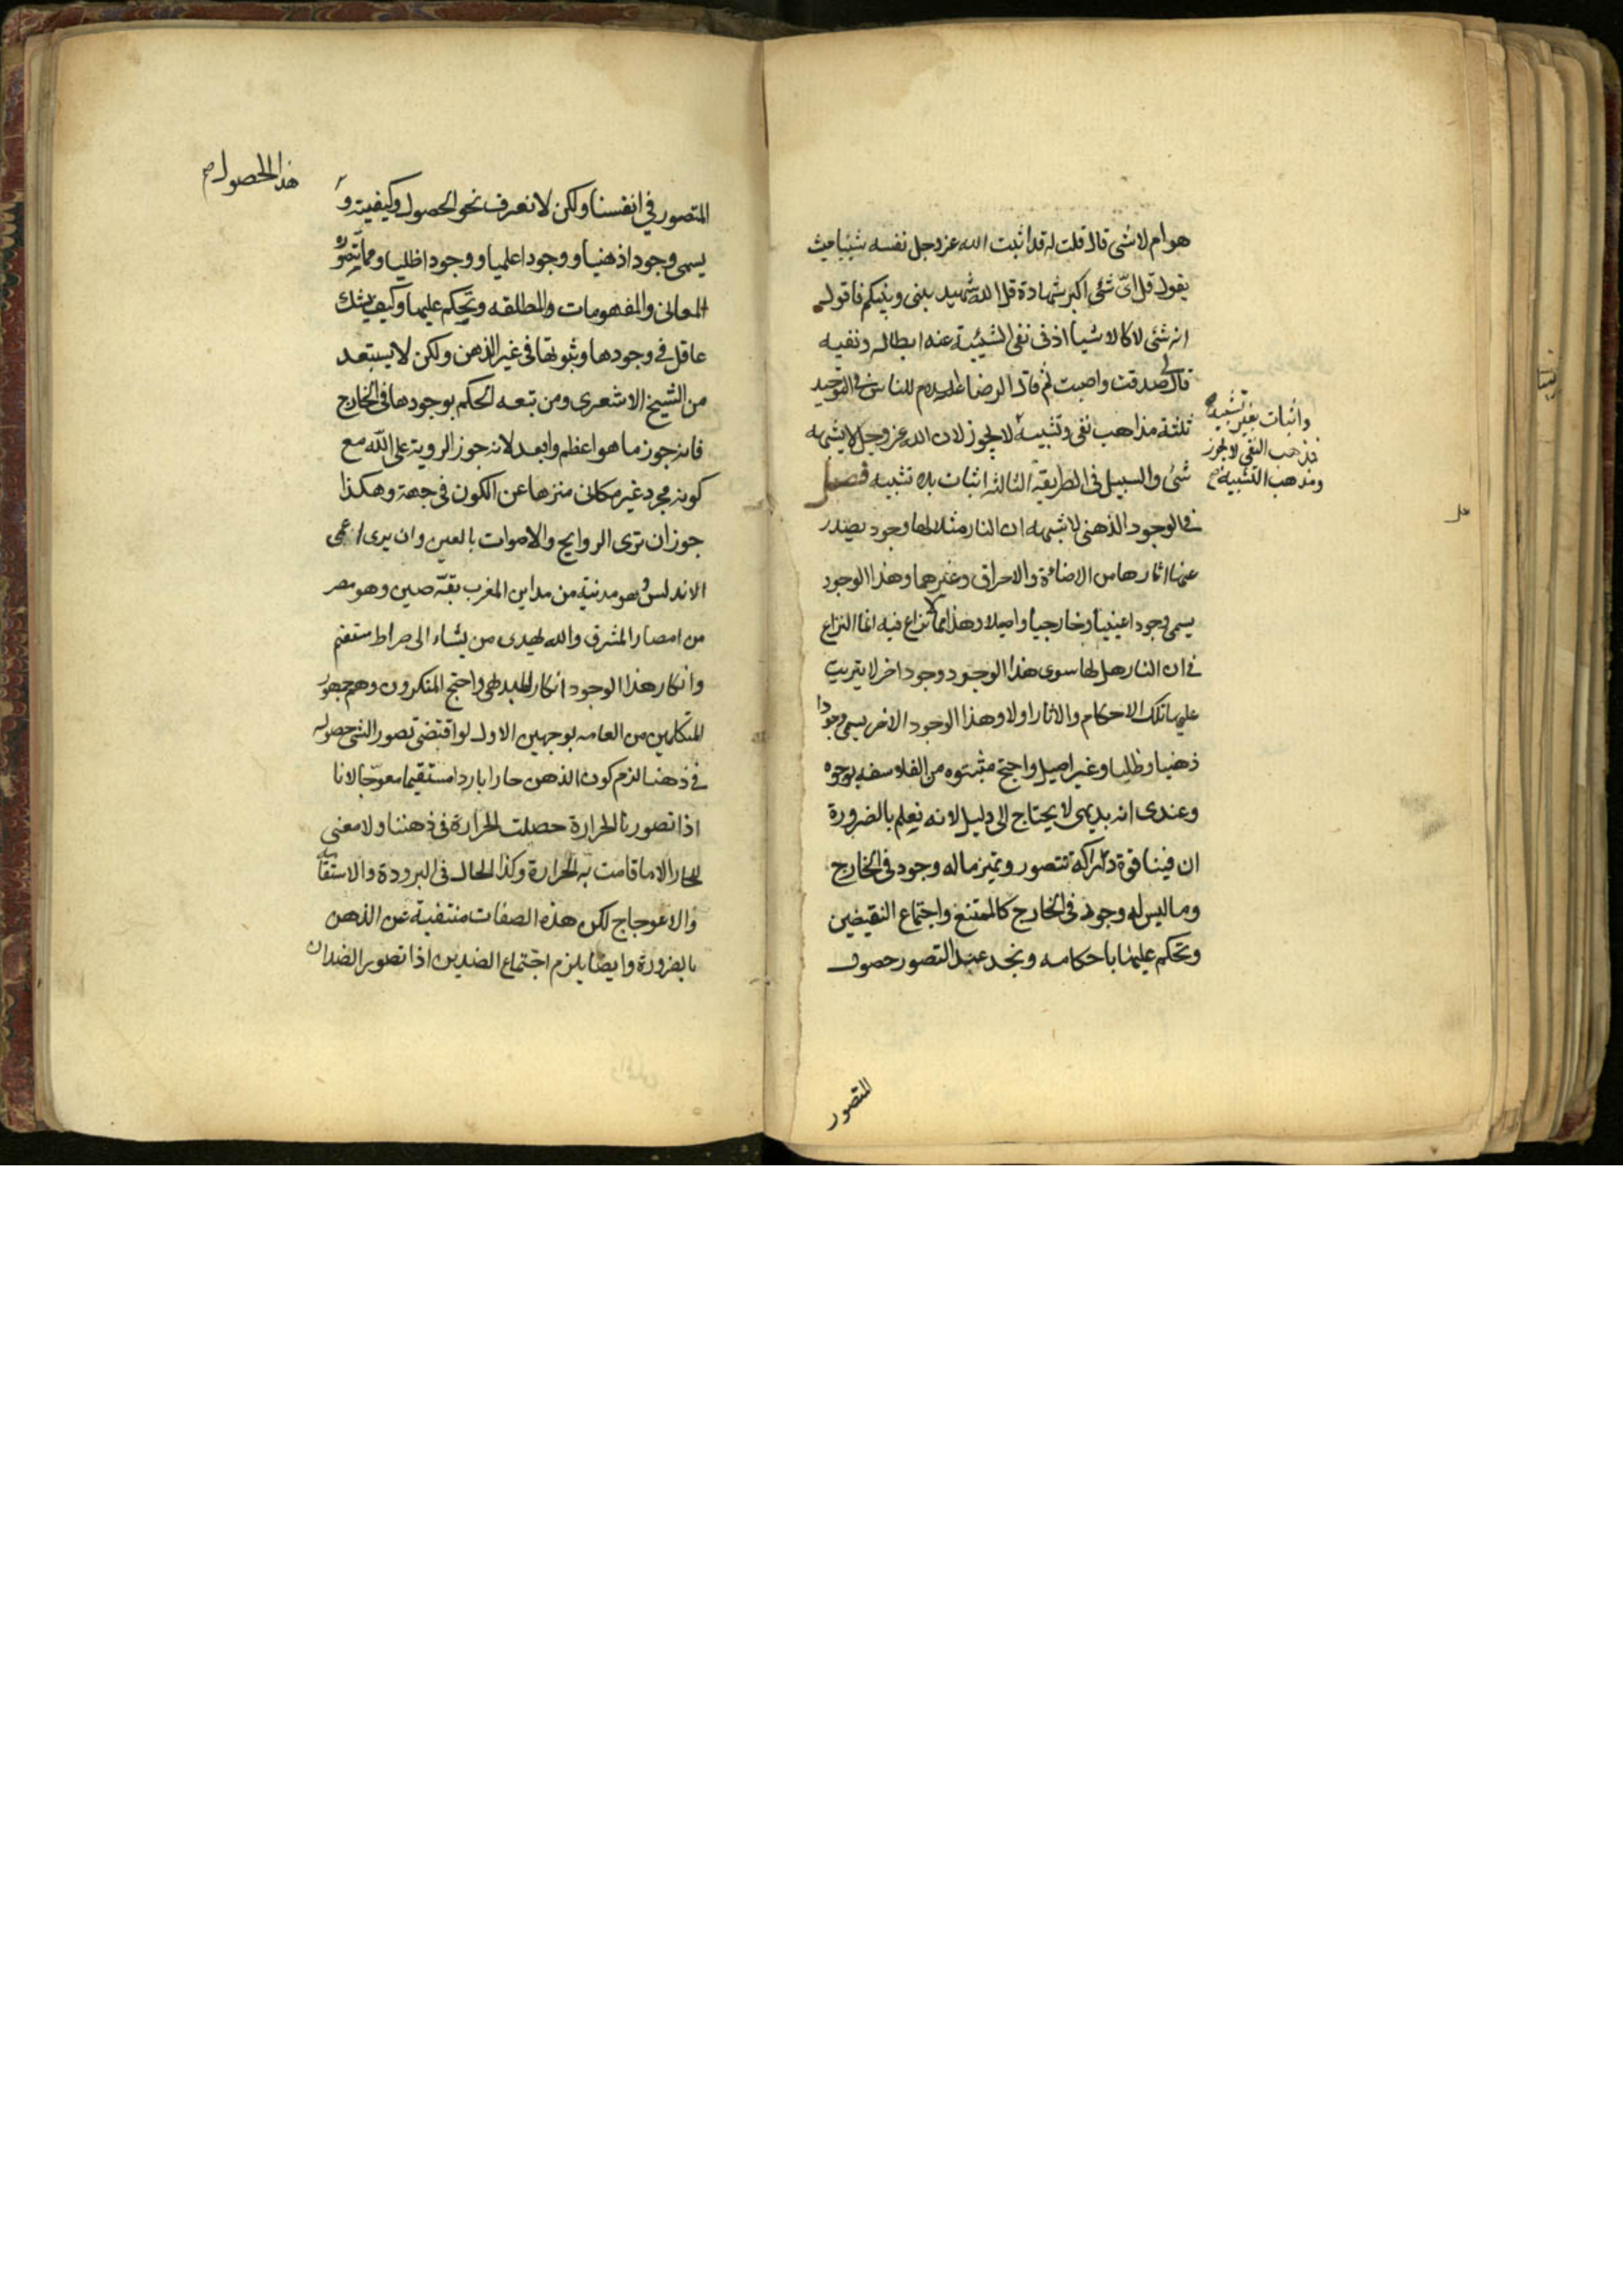 هو ام لا شئ قال قلت له قد اثبت الله عز وجل نفسه شيئا حيث
يقول قل اىّ شئ اكبر شهادة قل الله شهيد بينى وبينكم فاقول
انه شئ لا كالاشياء اذ فى نفى الشيئية عنه ابطاله ونفيه
قال لى صدقت واصبت ثم قال الرضا عليه السلام للناس فى التوحيد
ثلثة مذاهب نفى وتشبيه لا يجوز لان الله عز وجل لا يشبهه
شئ والسبيل فى الطريقة الثالثة اثبات بلا تشبيه فصل
فى الوجود الذهنى لا شبهه ان النار مثلا لها وجود يصدر
عنها اثارها من الاضائة والاحراق وغيرهما وهذا الوجود
يسمى وجودا عينيا وخارجيا واصيلا وهذا مما لا نزاع فيه انما النزاع
فى ان النار هل لها سوى هذا الوجود وجود اخر لا يترتب
عليها تلك الاحكام والاثار اولا وهذا الوجود الاخر يسمى وجودا
ذهنيا وظليا وغير اصيل واحتج مثبتوه من الفلاسفه بوجوه
وعندى انه بديهى لا يحتاج الى دليل لانه نعلم بالضرورة
ان فينا قوة دراكه تتصور وتميز ما له وجود فى الخارج
وما ليس له وجود فى الخارج كالممتنع واجتماع النقيضين
وتحكم عليها باحكامه ونجد عند التصور حصول
واثبات بغير تشبيه
فمذهب النفى لا يجوز
ومذهب التشبيه صح
المتصور
هذا الحصول صح
المتصور فى انفسنا ولكن لا نعرف نحو الحصول وكيفيته و
يسمى وجودا ذهنيا ووجودا علميا ووجودا ظليا ومما يتصوره
المعانى والمفهومات والمطلقه وتحكم عليها وكيف يشك
عاقل فى وجودها وثبوتها فى غير الذهن ولكن لا يستبعد
من الشيخ الاشعرى ومن تبعه الحكم بوجودها فى الخارج
فانه جوز ما هو اعظم وابعد لانه جوز الروية على الله مع
كونه مجرد غير مكانى منزها عن الكون فى جهة وهكذا
جوز ان ترى الروايح والاصوات بالعين وان يرى اعمى
الاندلس وهو مدنية من مداين المغرب بقّه صين وهو مصر
من امصار المشرق والله يهدى من يشاء الى صراط مستقيم
وانكار هذا الوجود انكار للبديهى واحتج المنكرون وهم جمهور
المتكلمين من العامه بوجهين الاول لو اقتضى تصور الشئ حصوله
فى ذهننا لزم كون الذهن حارا باردا مستقيما معوجّا لانا
اذا تصورنا الحرارة حصلت الحرارة فى ذهننا ولا معنى
للحار الا ما قامت به الحرارة وكذا الحال فى البرودة والاستقامة
والاعوجاج لكن هذه الصفات منتفية عن الذهن
بالضرورة وايضا يلزم اجتماع الضدين اذا تصور الضدان